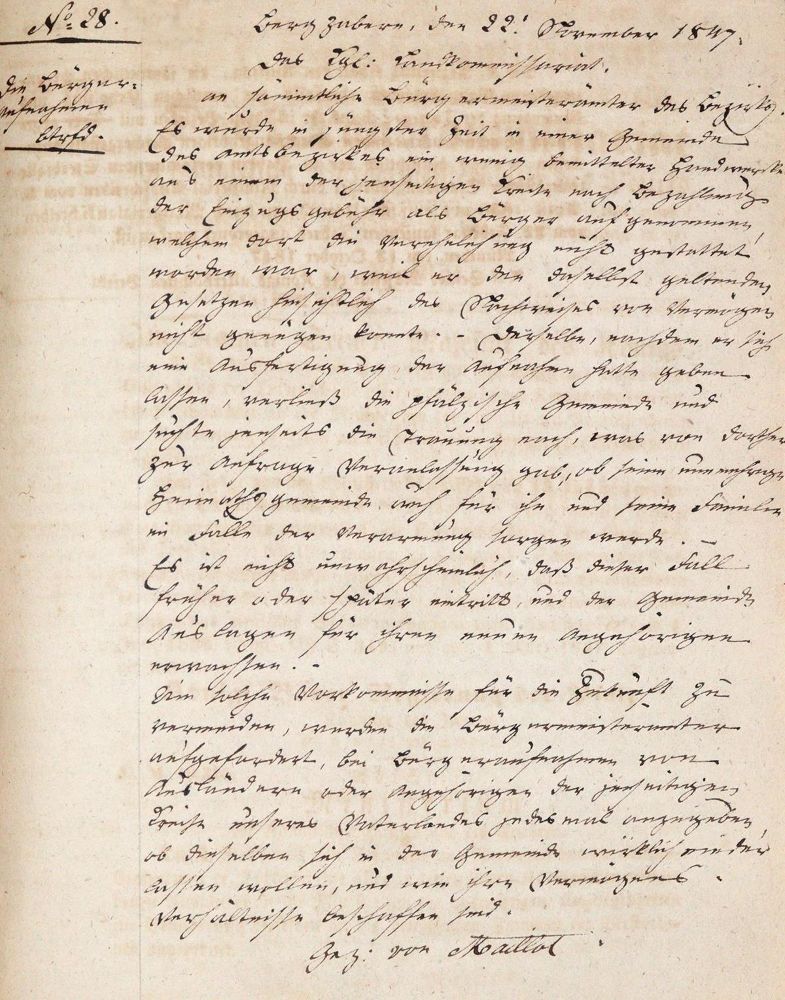 No. 28.
Die Bürger-
aufnahmen
btrfd.
Bergzabern, den 22. November 1847.
Das Kgl: Landkommissariat.
an sämmtliche Bürgermeisterämter des Bezirks.
Es wurde in jüngster Zeit in einer Gemeinde
des Amtsbezirkes ein wenig bemittelter Handwerker
aus einem der jenseitigen Kreise nach Bezahlung
der Einzugsgebühr als Bürger aufgenommen,
welchem dort die Verehelichung nicht gestattet
worden war, weil er den daselbst geltenden
Gesetzen hinsichtlich des Nachweises von Vermögen
nicht genügen konnte. - Derselbe, nachdem er sich
eine Ausfertigung der Aufnahme hatte geben
lassen, verließ die pfälzische Gemeinde und
suchte jenseits die Trauung nach, was von dorther
zur Anfrage Veranlassung gab, ob seine nunmehrige
Heimathsgemeinde auch für ihn und seine Familie
im Falle der Verarmung sorgen werde. -
Es ist nicht unwahrscheinlich, daß dieser Fall
früher oder später eintritt, und der Gemeinde
Auslagen für ihren neuen Angehörigen
erwachsen. -
Um solche Vorkommnisse für die Zukunft zu
vermeiden, werden die Bürgermeisterämter
aufgefordert, bei Bürgeraufnahmen von
Ausländern oder Angehörigen der jenseitigen
Kreise unseres Vaterlandes jedesmal anzugeben,
ob dieselben sich in der Gemeinde wirklich nieder
lassen wollen, und wie ihre Vermögens-
Verhältnisse beschaffen sind.
Gez: von Maillot